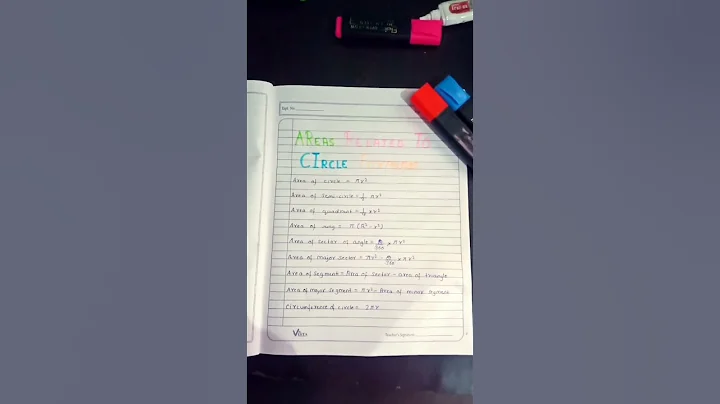 Page No.
AReas Related To
CIrcle
Area of circle = πr²
Area of semi-circle = 1/2 πr²
Area of quadrant = 1/4 πr²
Area of = π (R² - r²)
Area of sector of angle = θ/360 × πr²
Area of major sector = πr² - θ/360 × πr²
Area of segment = Area of sector - area of triangle
Area of major segment = πr² - Area of minor segment
Circumference of circle = 2πr
Teacher's Signature